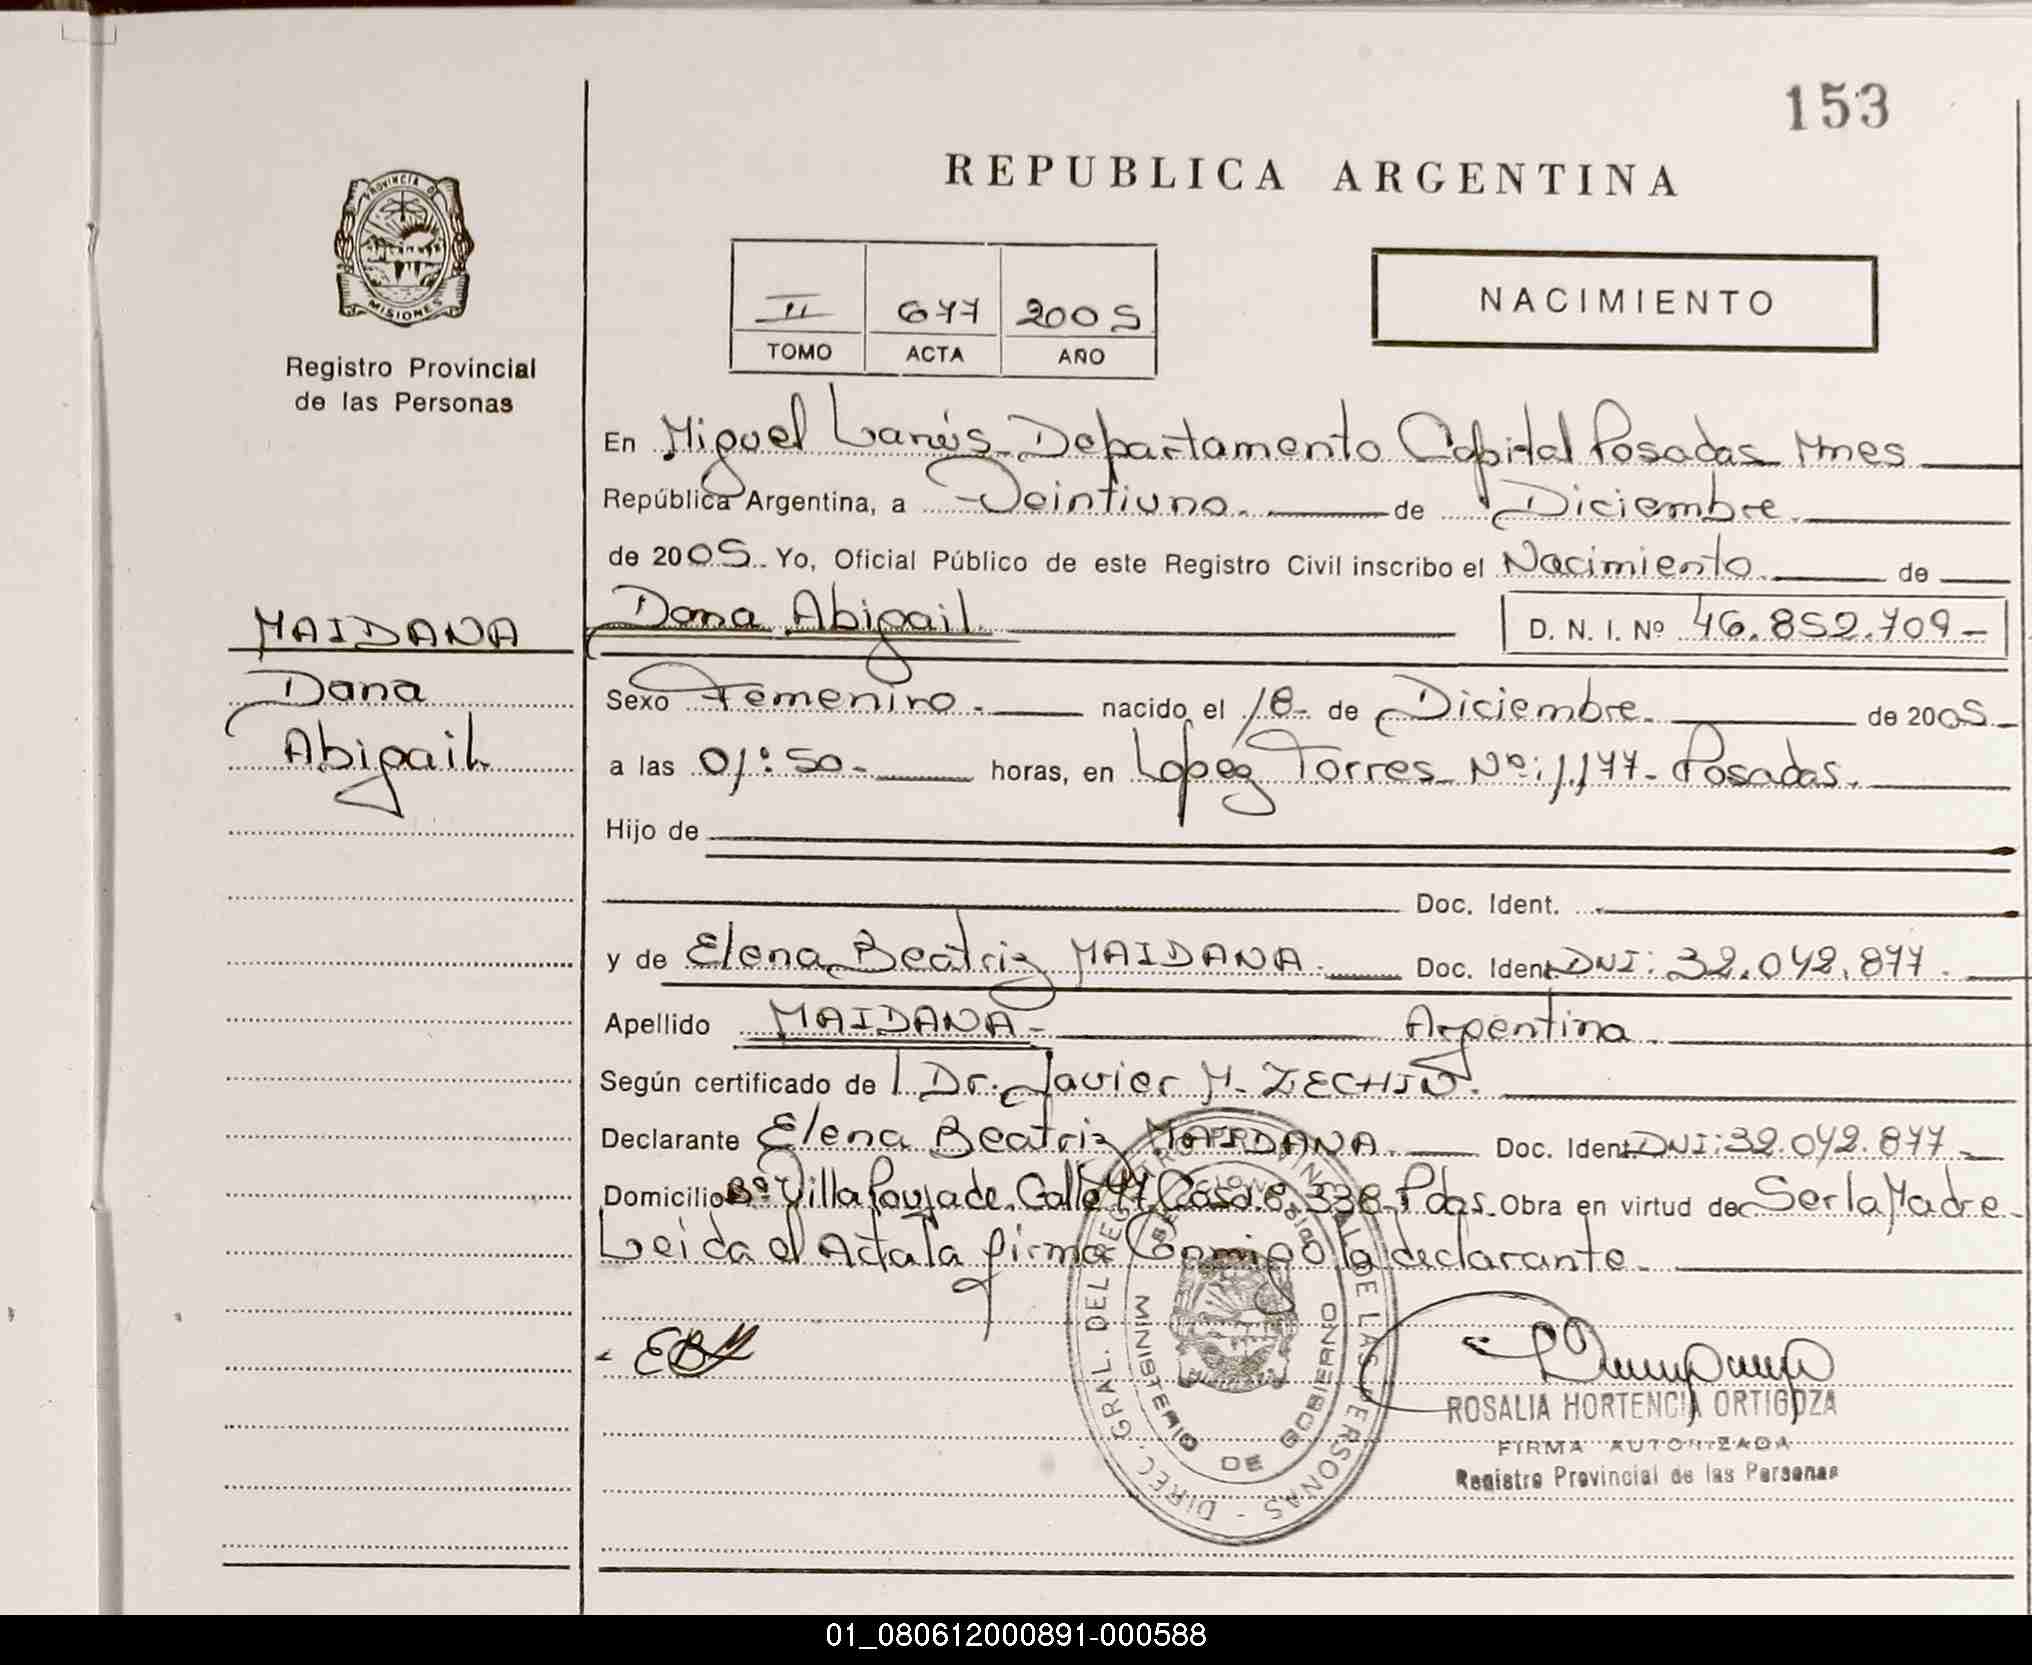 153
REPUBLICA ARGENTINA
PROVINCIA DE
MISIONES
Registro Provincial
de las Personas
II 677 2005
TOMO ACTA AÑO
NACIMIENTO
En Miguel Lanús Departamento Capital Posadas Mnes
República Argentina, a Veintiuno. de Diciembre.
de 2005. Yo, Oficial Público de este Registro Civil inscribo el Nacimiento. de
Dana Abigail. D. N. I. Nº 46.852.709-
MAIDANA
Dana
Abigail.
Sexo Femenino.- nacido el 18- de Diciembre. de 2005-
a las 01:50- horas, en Lopez Torres Nº:1.177- Posadas.
Hijo de
Doc. Ident.
y de Elena Beatriz MAIDANA. Doc. Ident DNI: 32.042.877.
Apellido MAIDANA- Argentina.
Según certificado de Dr. Javier M. ZECHIN.
Declarante Elena Beatriz MAIDANA. Doc. Ident DNI: 32.042.877-
Domicilio Bº Villa Poujade. Calle 47 Casa. 8.338- Pdas. Obra en virtud de Ser la Madre-
Leida el Acta la firma Conmigo la declarante.
EBM
DIREC. GRAL. DEL REGISTRO PROVINCIAL DE LAS PERSONAS -
MINISTERIO DE GOBIERNO
ROSALIA HORTENCIA ORTIGOZA
FIRMA AUTORIZADA
Registro Provincial de las Personas
01_080612000891-000588